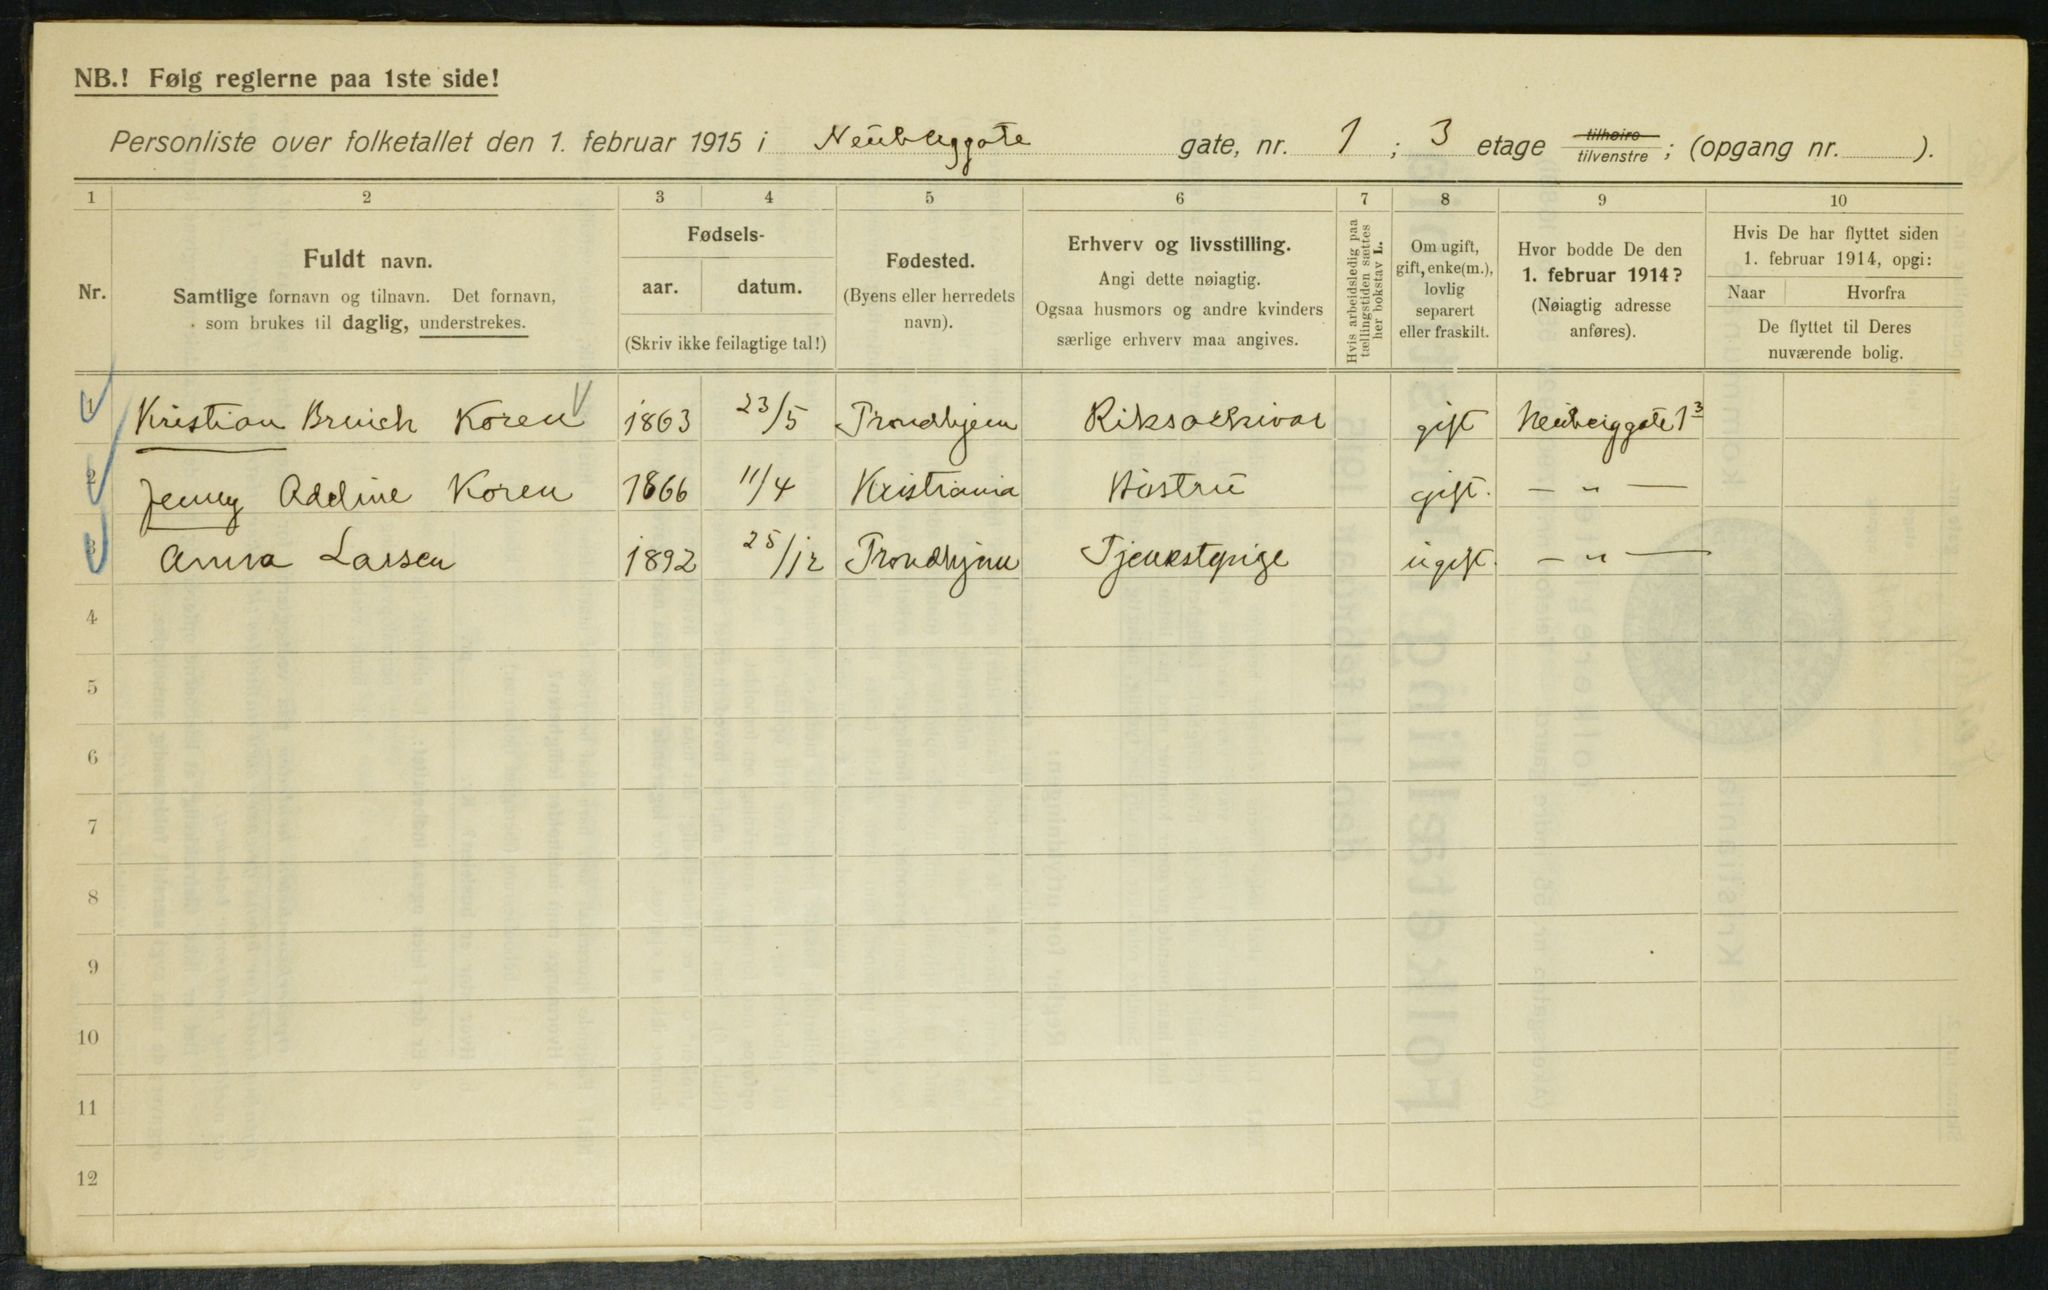 NB.! Følg reglerne paa 1ste side!
Personliste over folketallet den 1. februar 1915 i Neuberggate gate, nr. 1 ; 3 etage tilhøire tilvenstre ; (opgang nr. ).
1 2 3 4 5 6 7 8 9 10
Nr.
Fuldt navn.
Samtlige fornavn og tilnavn. Det fornavn,
som brukes til daglig, understrekes.
Fødsels-
aar. datum.
(Skriv ikke feilagtige tal!)
Fødested.
(Byens eller herredets
navn).
Erhverv og livsstilling.
Angi dette nøiagtig.
Ogsaa husmors og andre kvinders
særlige erhverv maa angives.
Hvis arbeidsledig paa
tællingstiden sættes
her bokstav L.
Om ugift,
gift, enke(m.),
lovlig
separert
eller fraskilt.
Hvor bodde De den
1. februar 1914?
(Nøiagtig adresse
anføres).
Hvis De har flyttet siden
1. februar 1914, opgi:
Naar Hvorfra
De flyttet til Deres
nuværende bolig.
1 Kristian Brinch Koren 1863 23/5 Trondhjem Riksarkivar gift Neuberggate 1 3
2 Jenny Adeline Koren 1866 11/4 Kristiania Hustru gift. — " —
3 Anna Larsen 1892 25/12 Trondhjem Tjenestepige ugift. — " —
4
5
6
7
8
9
10
11
12